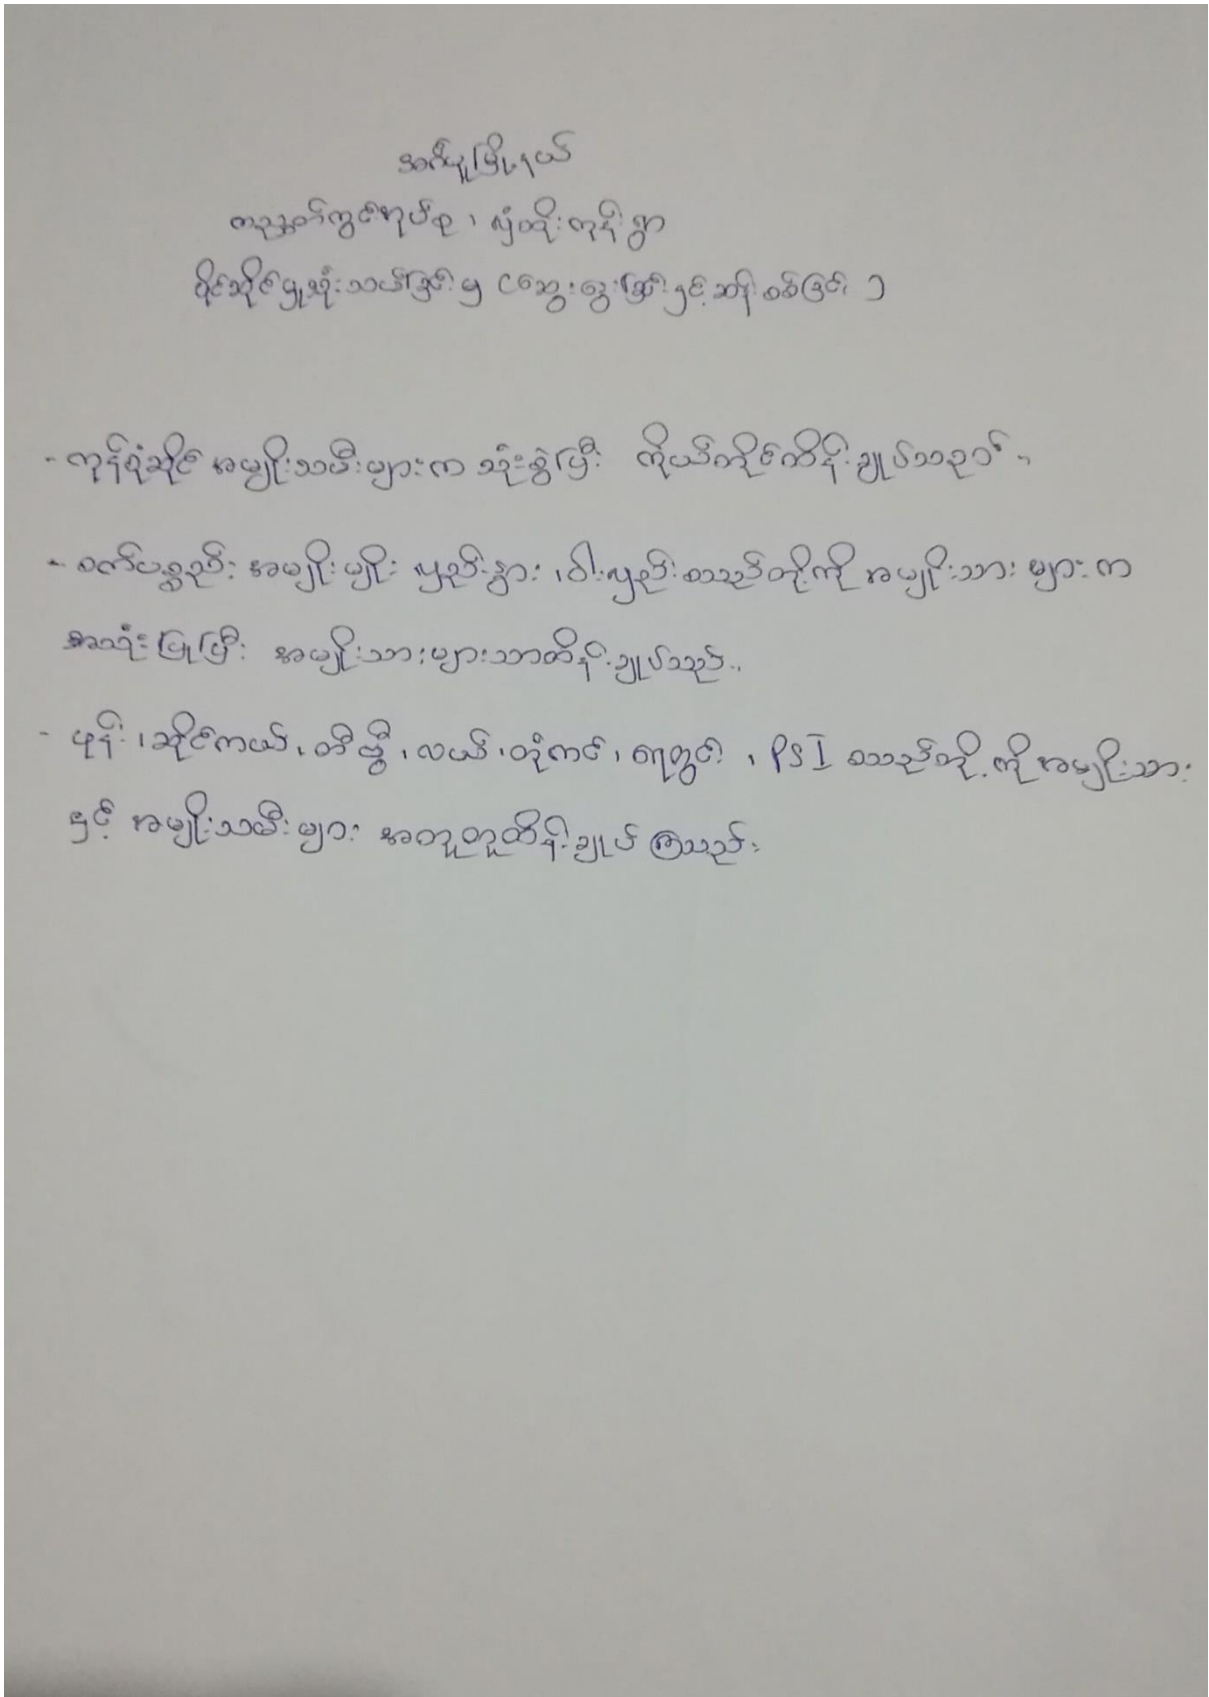 အင်္ဂပူမြို့နယ်
ကညွတ်ကွင်းအုပ်စု ၊ လှံထိုးကုန်းရွာ
ပိုင်ဆိုင်မှု့သုံးသပ်ခြင်းမှ (ဆွေးနွေးခြင်းနှင့်ဆန်းစစ်ခြင်း)
- ကုန်စုံဆိုင် အမျိုးသမီးများက သုံးစွဲပြီး ကိုယ်တိုင်ထိန်းချုပ်သည်။
- စက်ပစ္စည်း အမျိုးမျိုး လှည်းနွား ၊ ဝါးလှည်းစသည်တို့ကို အမျိုးသားများက
အသုံးပြုပြီး အမျိုးသားများသာထိန်းချုပ်သည်။
- ဖုန်း ၊ ဆိုင်ကယ် ၊ တီဗွီ ၊ လယ် ၊ တုံကင် ၊ ရေတွင်း ၊ PSI စသည်တို့ကို အမျိုးသား
နှင့် အမျိုးသမီးများ အတူတူထိန်းချုပ်ကြသည်။